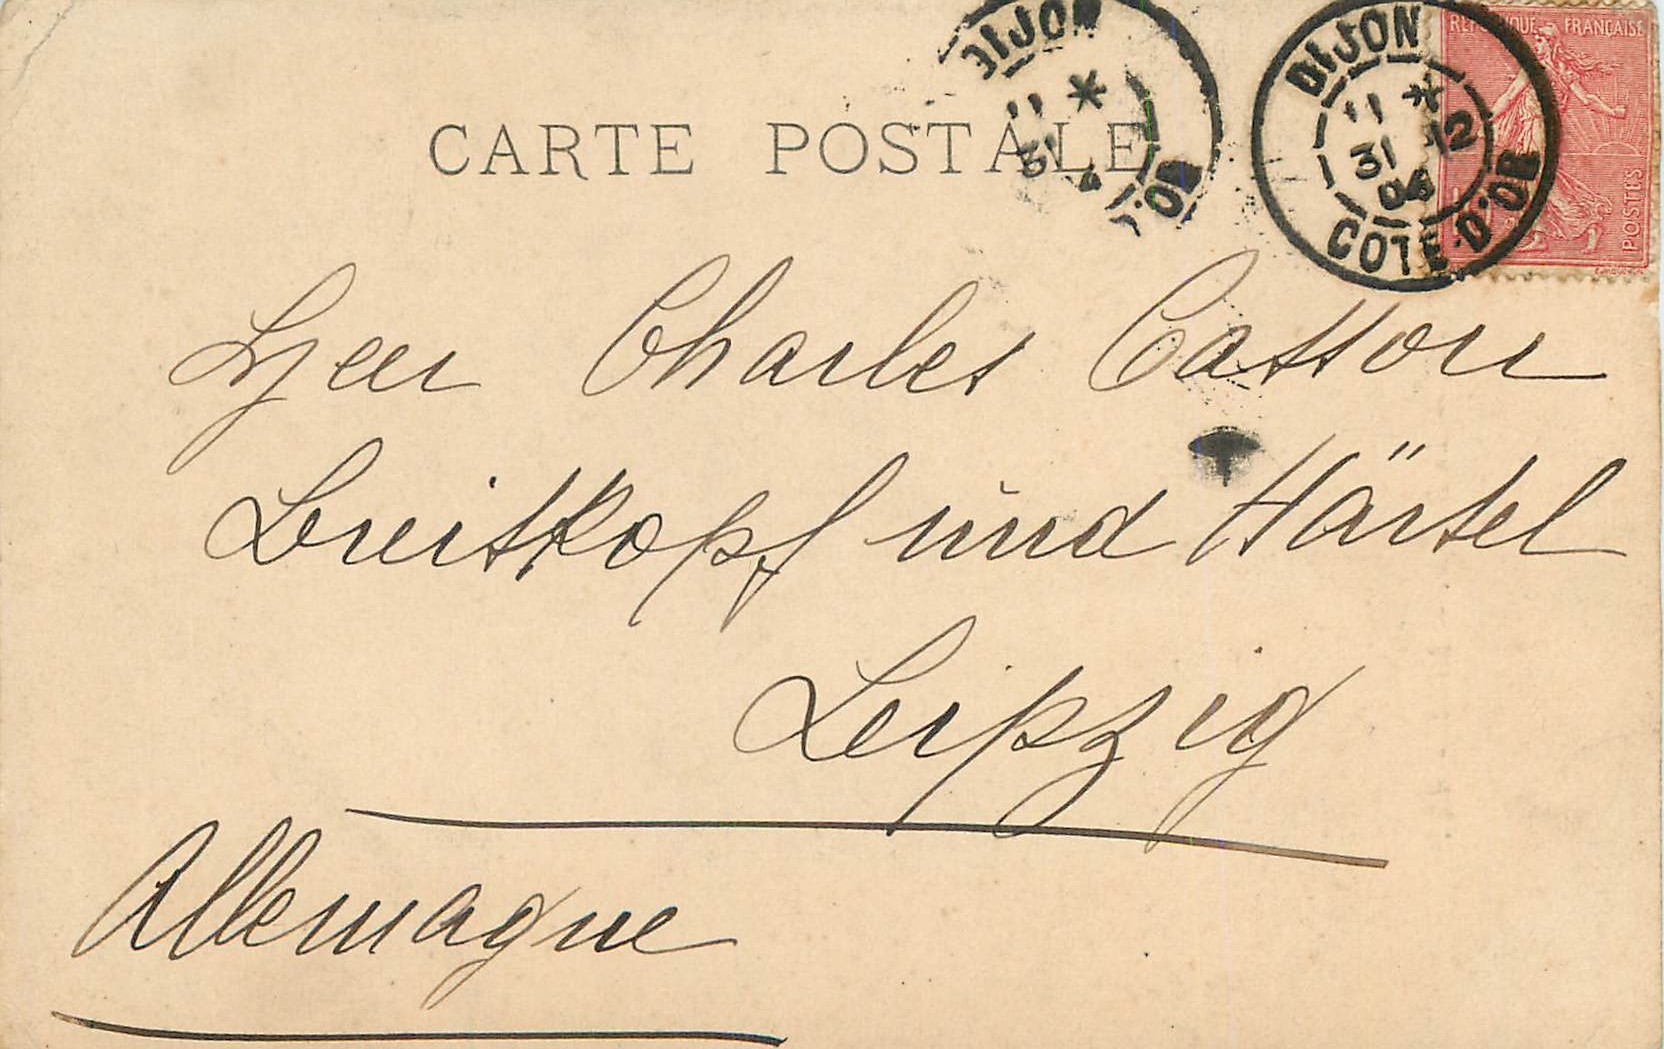 DIJON
11 *
31
D'OR
DIJON
11 *
31 12
04
COTE-D'OR
REPUBLIQUE FRANCAISE
POSTES
CARTE POSTALE
Herr Charles Casson
Breitkopf und Härtel
Leipzig
Allemagne